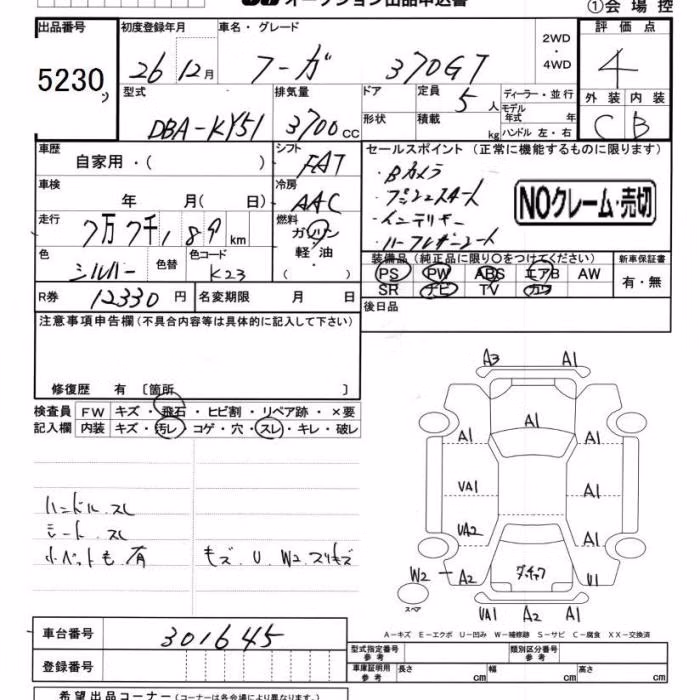 オークション出品申込書
①会場控
出品番号 初度登録年月 車名・グレード 2WD・4WD 評価点
5230 26 12月 フーガ 370GT 4
型式 排気量 ドア 定員 ディーラー・並行 外装 内装
DBA-KY51 3700cc 5人 モデル年式 年 C B
形状 積載 kg ハンドル 左・右
車歴 自家用・( ) シフト FAT セールスポイント (正常に機能するものに限ります)
・Bカメラ
車検 年 月( 日) 冷房 AAC ・プッシュスタート
NOクレーム・売切
・インテリキー
走行 7万7千189km 燃料 ガソリン・軽油・( ) ・ハーフレザーシート
色 シルバー 色替 色コード K23
装備品 (純正品に限り○をつけてください) 新車保証書
PS PW ABS エアB AW 有・無
SR ナビ TV カワ
R券 12330円 名変期限 月 日
後日品
注意事項申告欄 (不具合内容等は具体的に記入して下さい)
修復歴 有 〔箇所 〕
検査員 FW キズ・飛石・ヒビ割・リペア跡・×要
記入欄 内装 キズ・汚レ・コゲ・穴・スレ・キレ・破レ
A3 A1
A1
A1 A1
VA1 A1
VA2 A1
W2 A2 U1
VA1 A2 A1
スペア
ハンドル スレ
シート スレ
キズ U W2 スリキズ
A-キズ E-エクボ U-凹み W-補修跡 S-サビ C-腐食 XX-交換済
車台番号 301645
登録番号
型式指定番号 参考 類別区分番号 参考
車庫証明用 参考 長さ cm 幅 cm 高さ cm
希望出品コーナー (コーナーは各会場により異なります。)